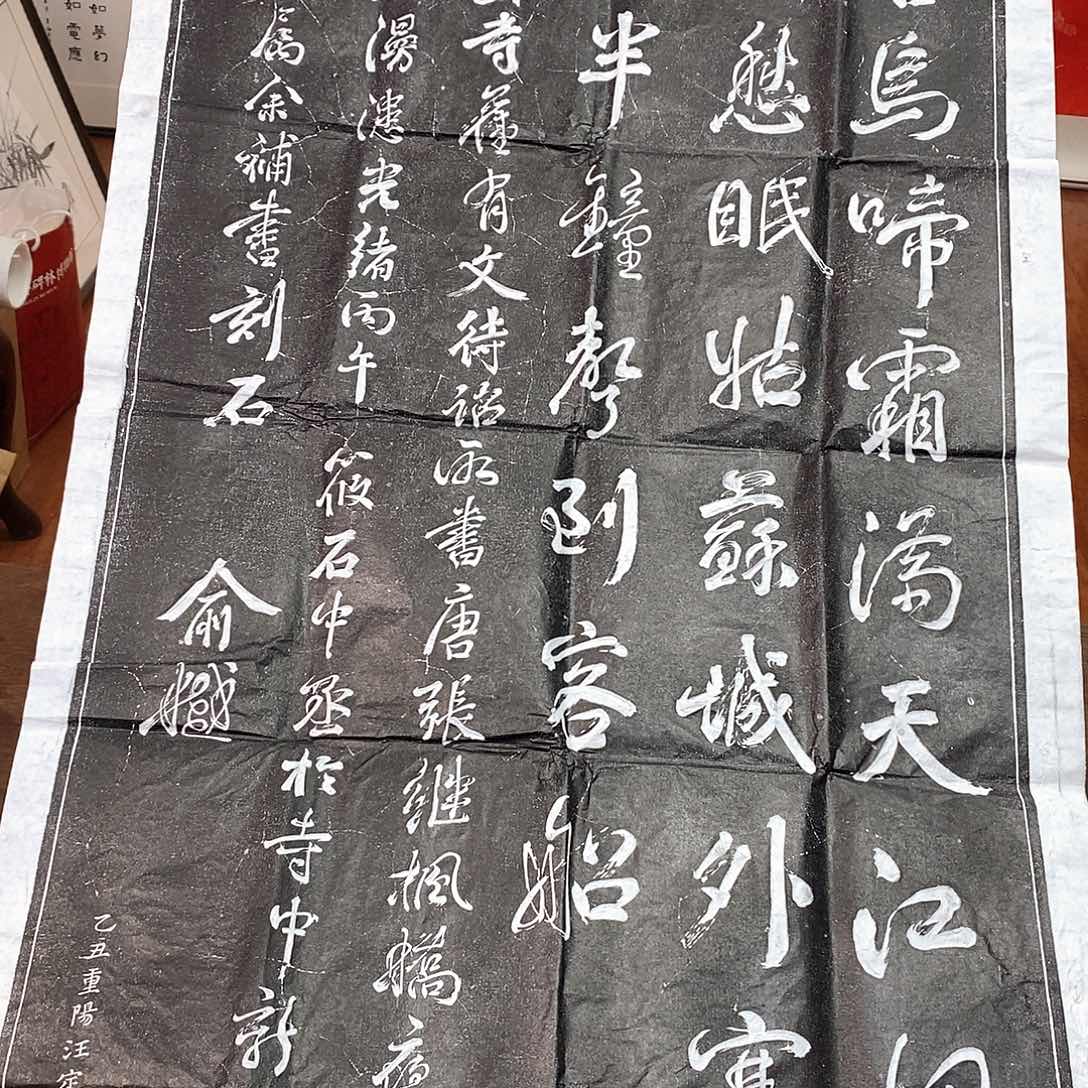 烏啼霜滿天江
愁眠姑蘇城外寒
半鐘聲到客船
寺舊有文待詔所書唐張繼楓橋夜
漫漶光緒丙午筱石中丞於寺中新
屬余補書刻石
俞樾
乙丑重陽汪定
如夢幻
如電應